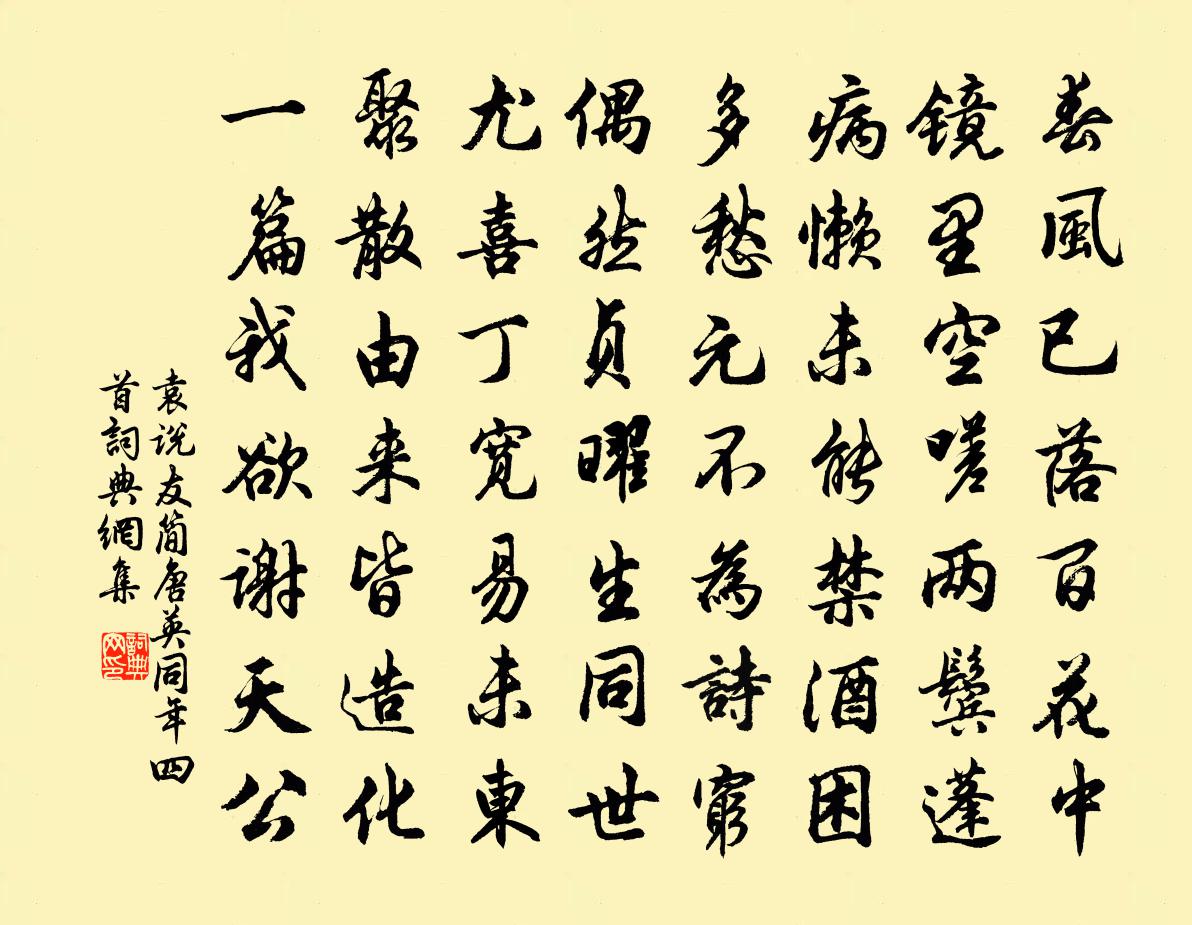 春風已落百花中
镜里空嗟两鬓蓬
病懒未能禁酒困
多愁元不為詩窮
偶然貞曜生同世
尤喜丁宽易未東
聚散由来皆造化
一篇我欲谢天公
袁说友简唐英同年四
首詞典網集
詞典
网印